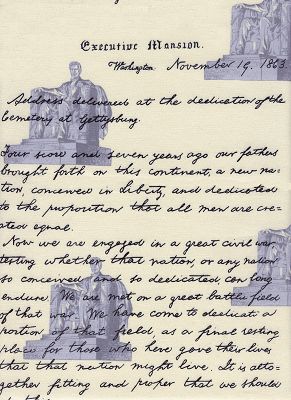 Executive Mansion.
Washington, November 19, 1863.
Address delivered at the dedication of the
cemetery at Gettysburg.
Four score and seven years ago our fathers
brought forth on this continent, a new na-
tion, conceived in Liberty, and dedicated
to the proposition that all men are cre-
ated equal.
Now we are engaged in a great civil war,
testing whether that nation, or any nation
so conceived and so dedicated, can long
endure. We are met on a great battle field
of that war. We have come to dedicate a
portion of that field, as a final resting
place for those who here gave their lives
that that nation might live. It is alto-
gether fitting and proper that we should